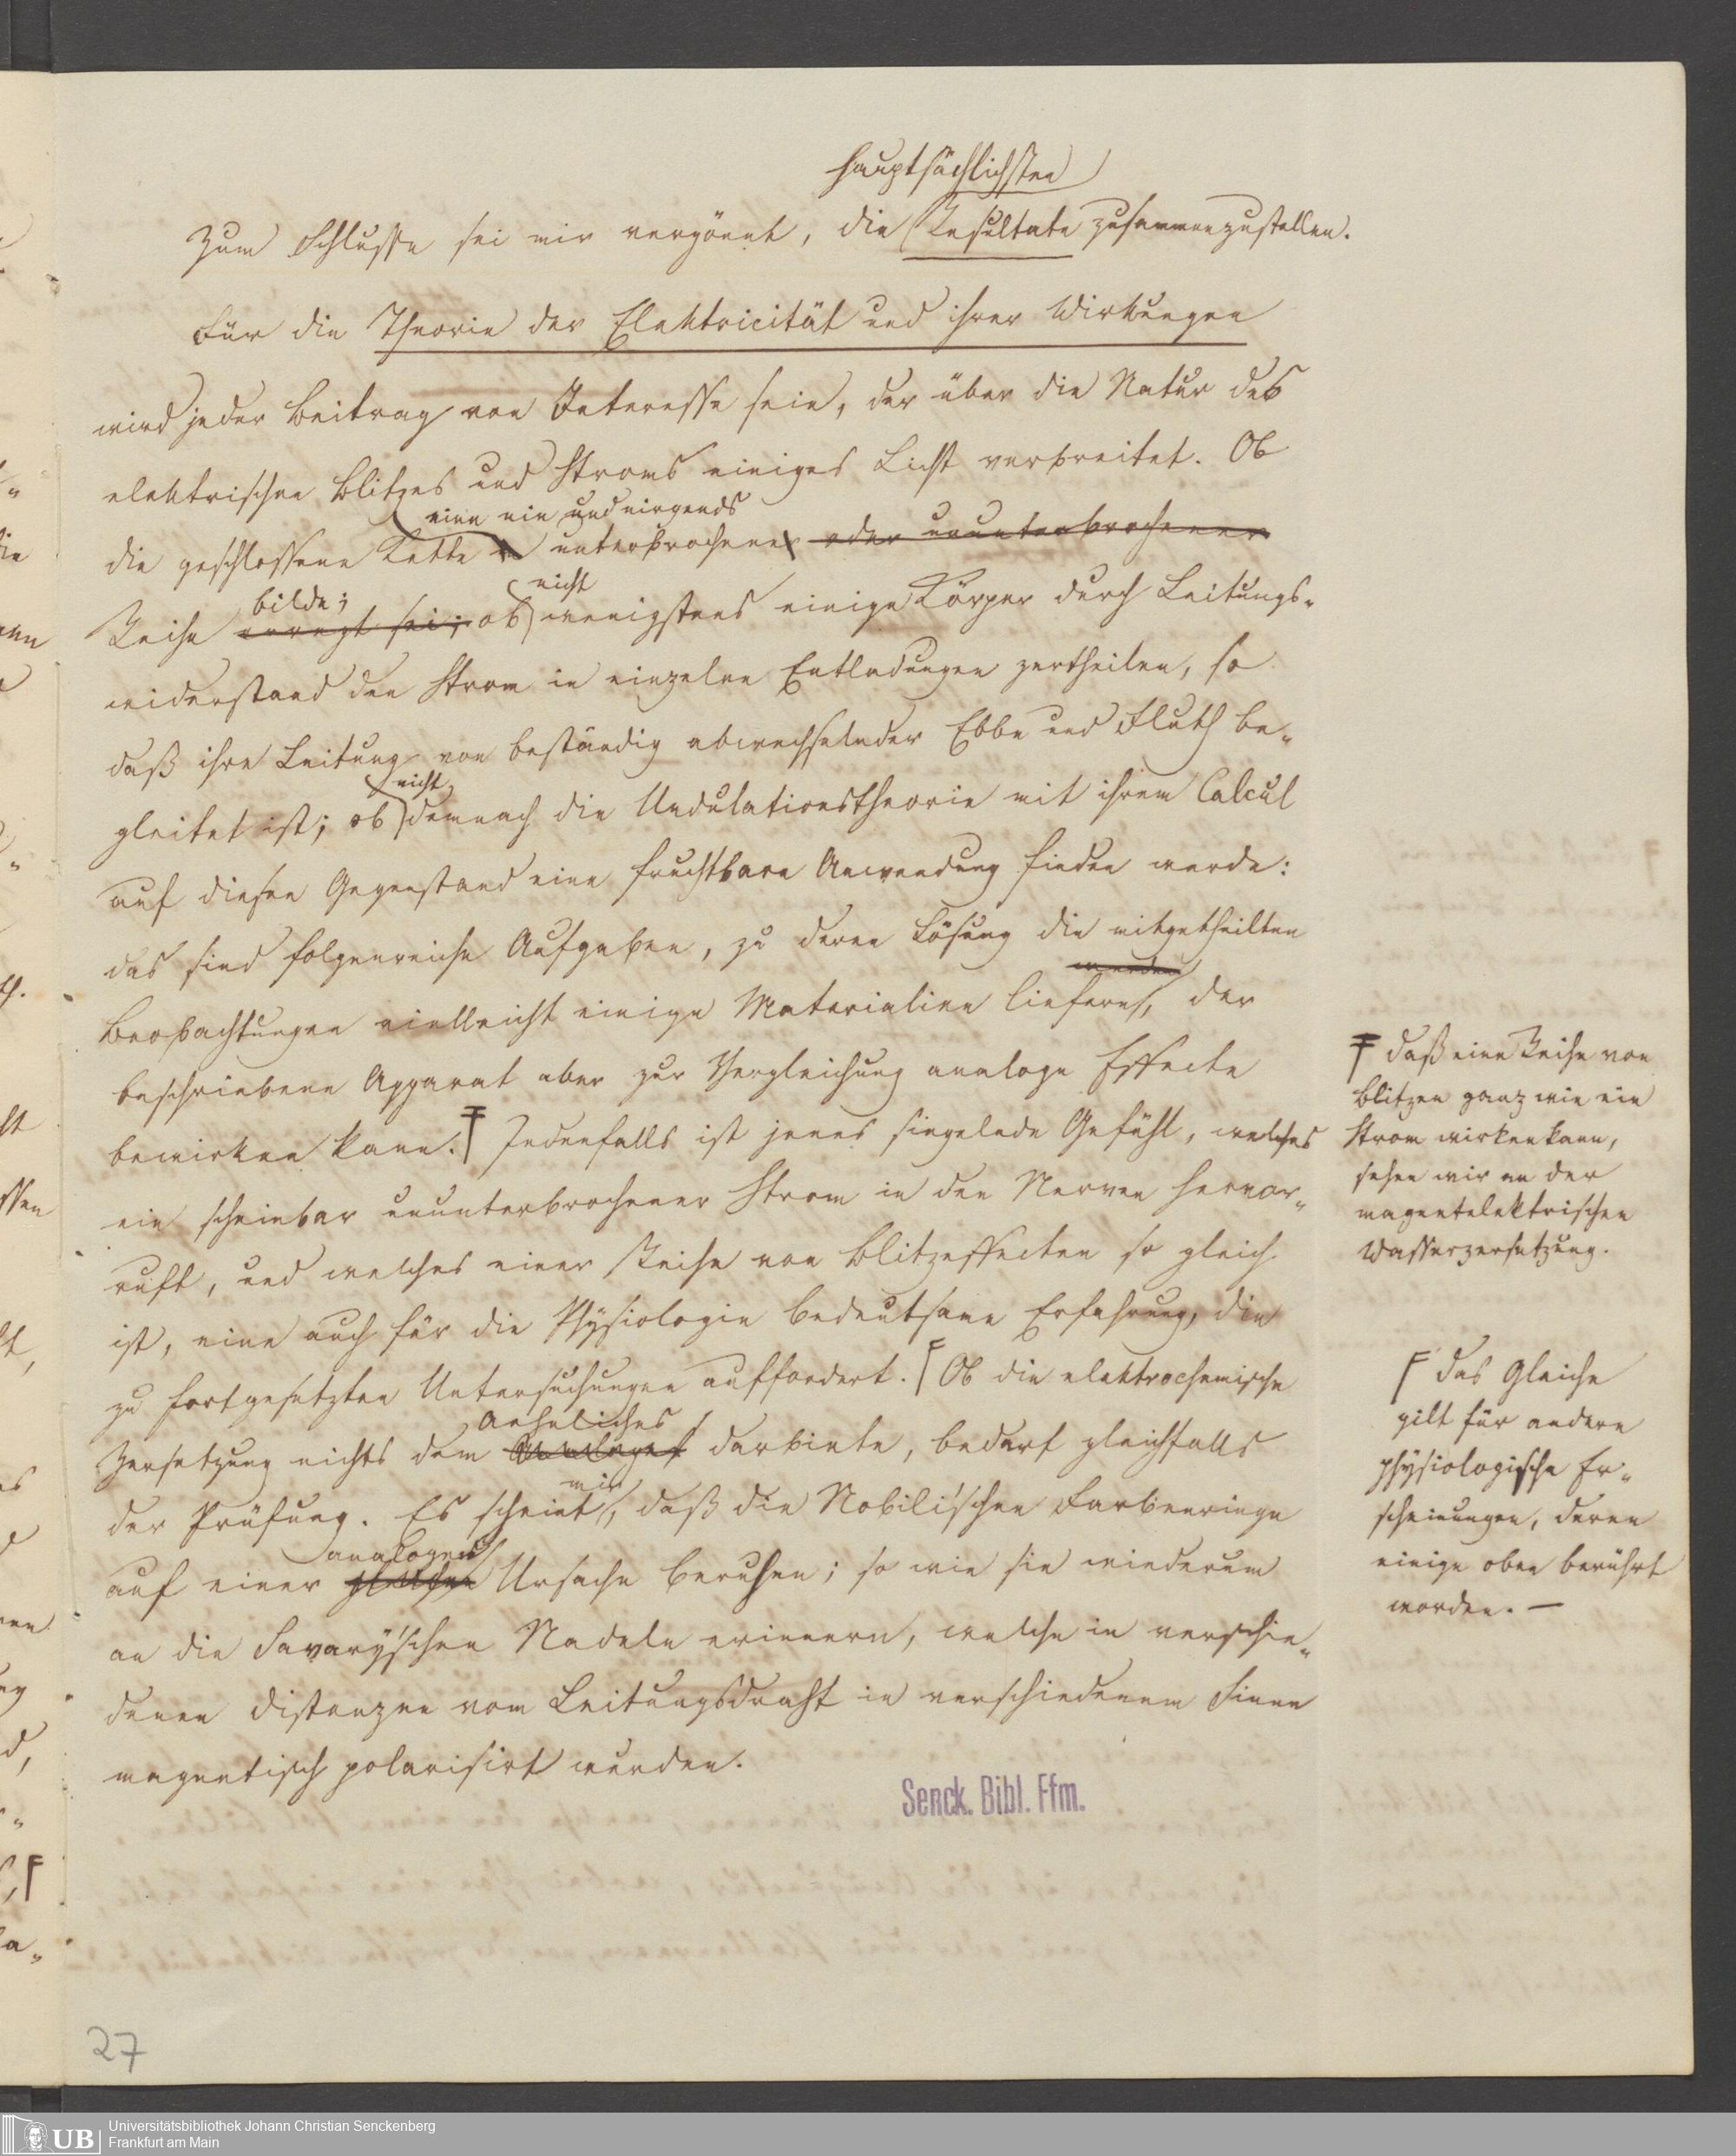 hauptsächlichsten
Zum Schlusse sei mir vergönnt, die Resultate zusammenzustellen.
Für die Theorie der Elektricität und ihrer Wirkungen
wird jeder Beitrag von Interesse sein, der über die Natur des
elektrischen Blitzes und Stroms einiges Licht verbreitet. Ob
eine nie und nirgends
die geschlossene Kette unterbrochene oder ununterbrochener
bilde; nicht
Reihe erregt sei; ob wenigstens einige Körper durch Leitungs-
widerstand den Strom in einzelne Entladungen zertheilen, so
daß ihre Leitung von beständig abwechselnder Ebbe und Fluth be-
nicht
gleitet ist; ob demnach die Undulationstheorie mit ihrem Calcul
auf diesen Gegenstand eine fruchtbare Anwendung finden werde:
das sind folgenreiche Aufgaben, zu deren Lösung die mitgetheilten
werden
Beobachtungen vielleicht einige Materialien liefern, der
beschriebene Apparat aber zur Vergleichung analoge Effecte
bewirken kann. Jedenfalls ist jenes singelnde Gefühl, welches
ein scheinbar ununterbrochener Strom in den Nerven hervor-
ruft, und welches einer Reihe von Blitzeffecten so gleich
ist, eine auch für die Physiologie bedeutsame Erfahrung, die
zu fortgesetzten Untersuchungen auffordert. Ob die elektrochemische
Aehnliches
Zersetzung nichts dem Analoges darbiete, bedarf gleichfalls
mir
der Prüfung. Es scheint, daß die Nobili'schen Farbenringe
analogen
auf einer gleichen Ursache beruhen; so wie sie wiederum
an die Savary'schen Nadeln erinnern, welche in verschie-
denen Distanzen vom Leitungsdraht in verschiedenem Sinne
magnetisch polarisirt wurden.
daß eine Reihe von
Blitzen ganz wie ein
Strom wirken kann,
sehen wir an der
magnetelektrischen
Wasserzersetzung.
Das Gleiche
gilt für andere
physiologische Er-
scheinungen, deren
einige oben berührt
worden. —
Senck. Bibl. Ffm.
27
UB
Universitätsbibliothek Johann Christian Senckenberg
Frankfurt am Main